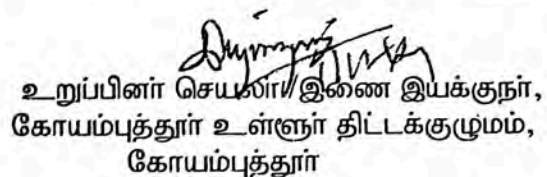 உறுப்பினர் செயலர்/இணை இயக்குநர்,
கோயம்புத்தூர் உள்ளூர் திட்டக்குழுமம்,
கோயம்புத்தூர்